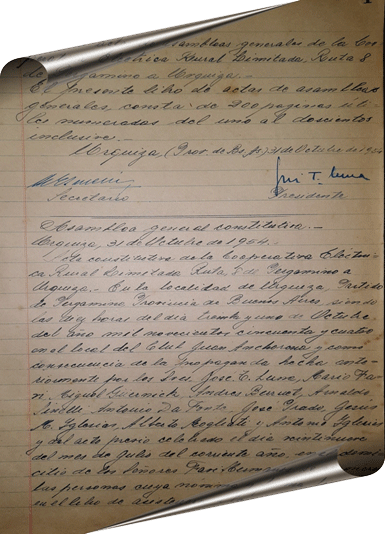 asambleas generales de la Coo
Eléctrica Rural Limitada, Ruta 8
de Pergamino a Urquiza.-
El presente libro de actas de asambleas
generales, consta: de 200 páginas úti-
les numeradas del uno al doscientos
inclusive.-
Urquiza, (Prov. de Bs. As.) 31 de Octubre de 1954
Secretario Presidente
Asamblea general constitutiva.-
Urquiza, 31 de Octubre de 1954.-
constitutiva de la Cooperativa Eléctri-
ca Rural Limitada Ruta 8 de Pergamino a
Urquiza.- En la localidad de Urquiza, Partido
de Pergamino Provincia de Buenos Aires, siendo
las horas del día treinta y uno de Octubre
del año mil novecientos cincuenta y cuatro
en el local del Club Juan Anchorena y como
consecuencia de la propaganda hecha ante-
riormente por los Sres. José T. Luna, Mario
Miguel Andrés Bernat, Arnaldo
Antonio Da Fonte, José Prado, Jesús
M. Iglesias, Alberto y Antonio Iglesias
y del acto previo celebrado el día veintinueve
del mes de Julio del corriente año, en el domi-
cilio de los Señores
las personas cuya
en el libro de